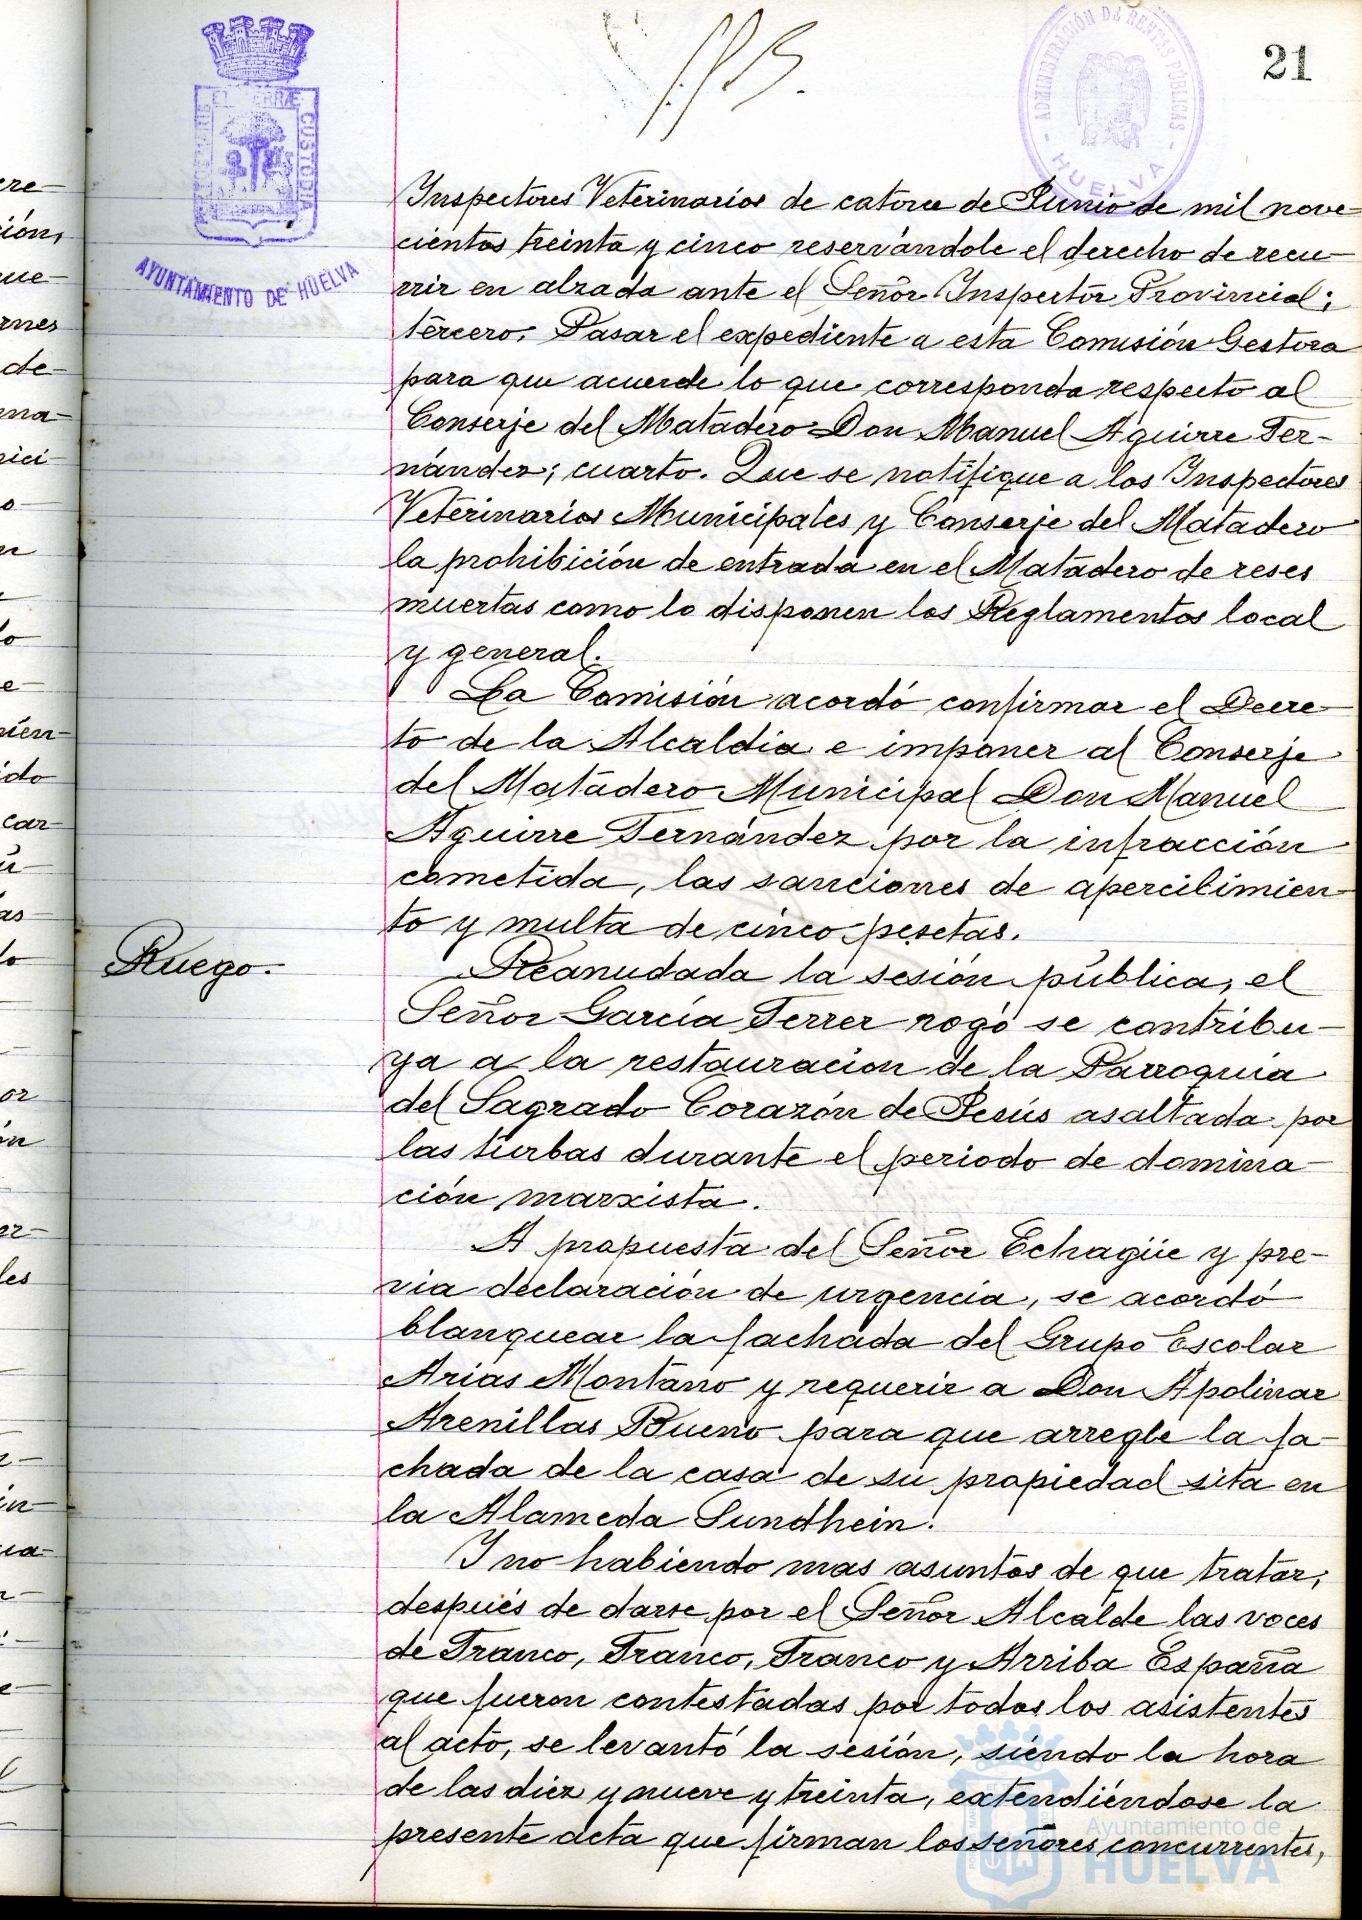 21
ADMINISTRACIÓN DE RENTAS PÚBLICAS
- HUELVA -
PORTUS MARIS ET TERRÆ CUSTODIA
AYUNTAMIENTO DE HUELVA
Inspectores Veterinarios de catorce de Junio de mil nove-
cientos treinta y cinco reservándole el derecho de recu-
rrir en alzada ante el Señor Inspector Provincial;
tercero. Pasar el expediente a esta Comisión Gestora
para que acuerde lo que corresponda respecto al
Conserje del Matadero Don Manuel Aguirre Fer-
nández; cuarto. Que se notifique a los Inspectores
Veterinarios Municipales y Conserje del Matadero
la prohibición de entrada en el Matadero de reses
muertas como lo disponen los Reglamentos local
y general.
La Comisión acordó confirmar el Decre-
to de la Alcaldia e imponer al Conserje
del Matadero Municipal Don Manuel
Aguirre Fernández por la infracción
cometida, las sanciones de apercibimien-
to y multa de cinco pesetas.
Ruego.
Reanudada la sesión pública, el
Señor García Ferrer rogó se contribu-
ya a la restauracion de la Parroquia
del Sagrado Corazón de Jesús asaltada por
las turbas durante el periodo de domina-
ción marxista.
A propuesta del Señor Echagüe y pre-
via declaración de urgencia, se acordó
blanquear la fachada del Grupo Escolar
Arias Montano y requerir a Don Apolinar
Arenillas Bueno para que arregle la fa-
chada de la casa de su propiedad sita en
la Alameda Sundhein.
Y no habiendo mas asuntos de que tratar,
después de darse por el Señor Alcalde las voces
de Franco, Franco, Franco y Arriba España
que fueron contestadas por todos los asistentes
al acto, se levantó la sesión, siendo la hora
de las diez y nueve y treinta, extendiéndose la
presente acta que firman los señores concurrentes,
Ayuntamiento de
HUELVA